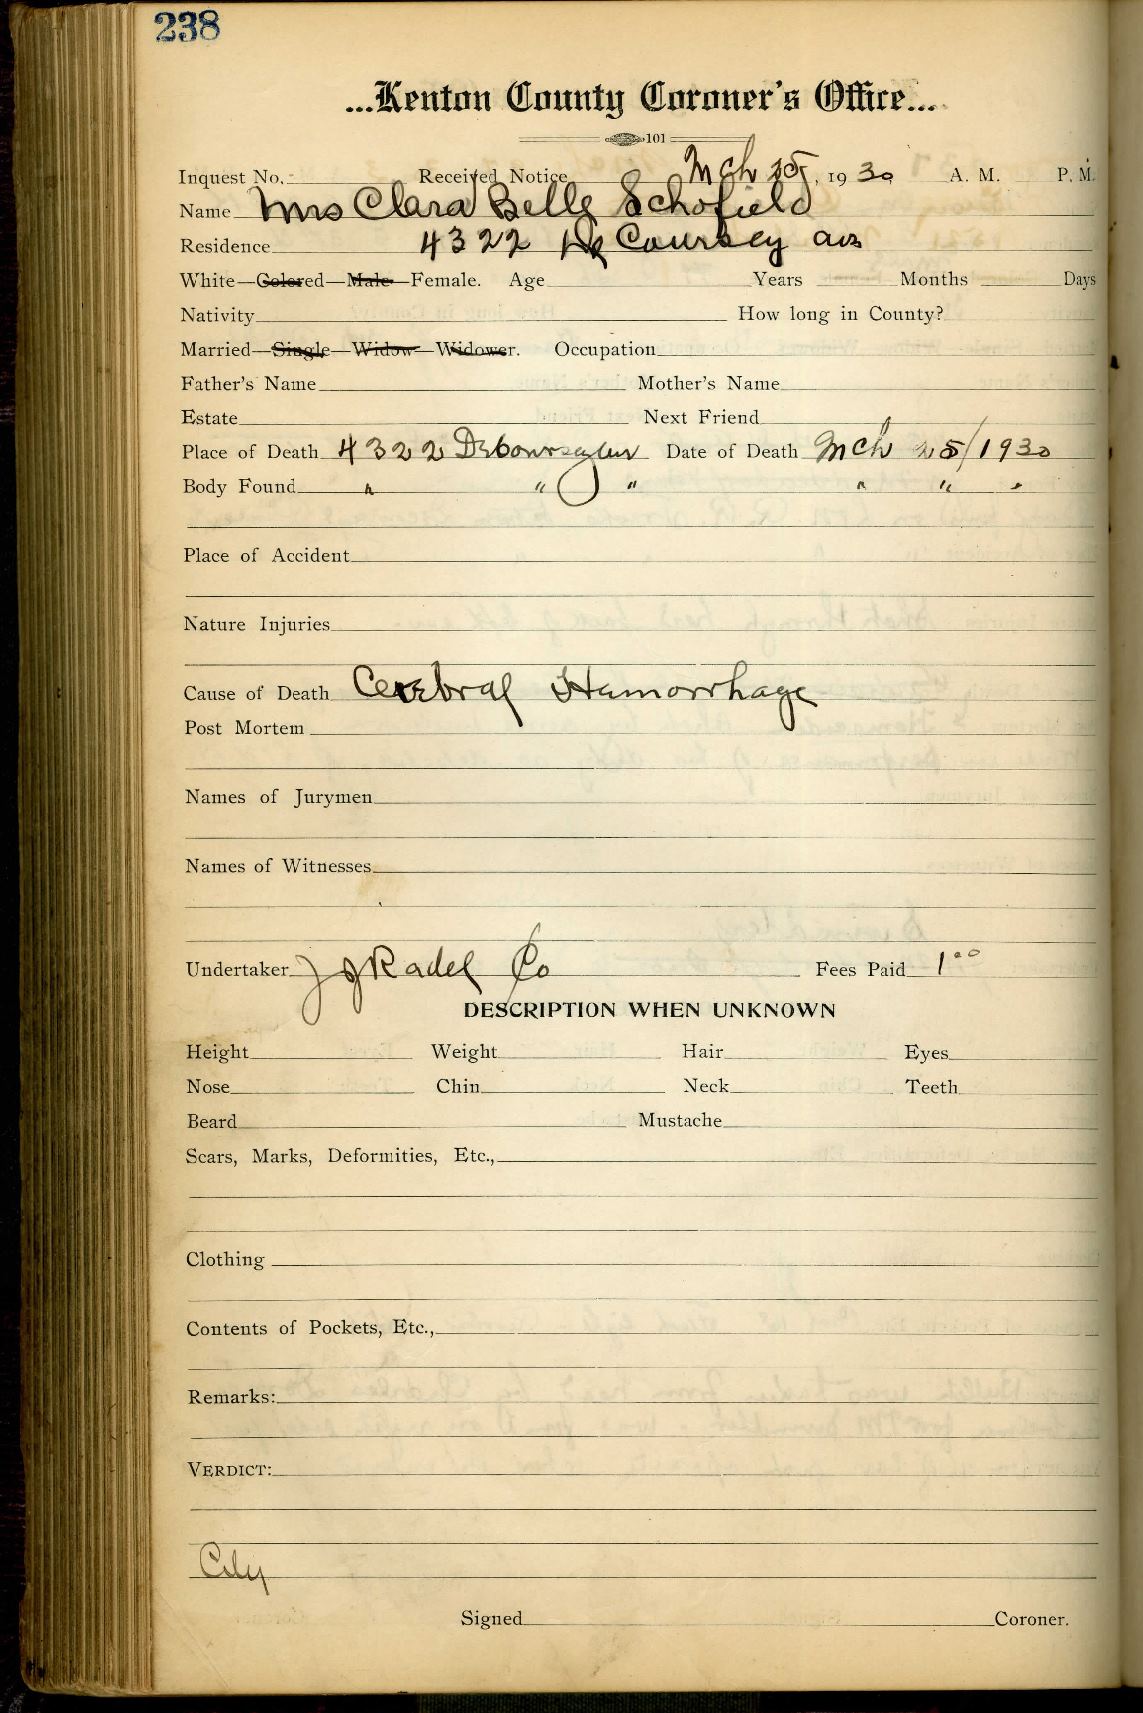 238
...Kenton County Coroner's Office...
101
Inquest No. Received Notice Mch 25, 1930 A. M. P. M.
Name Mrs Clara Belle Schofield
Residence 4322 De Coursey ave
White—Colored—Male—Female. Age Years Months Days
Nativity How long in County?
Married—Single—Widow—Widower. Occupation
Father's Name Mother's Name
Estate Next Friend
Place of Death 4322 DeCoursey av Date of Death Mch 25/1930
Body Found " " " " " "
Place of Accident
Nature Injuries
Cause of Death Cerebral Hamorrhage
Post Mortem
Names of Jurymen
Names of Witnesses
Undertaker J J Radel Co Fees Paid 1 00
DESCRIPTION WHEN UNKNOWN
Height Weight Hair Eyes
Nose Chin Neck Teeth
Beard Mustache
Scars, Marks, Deformities, Etc.,
Clothing
Contents of Pockets, Etc.,
Remarks:
VERDICT:
City
Signed Coroner.